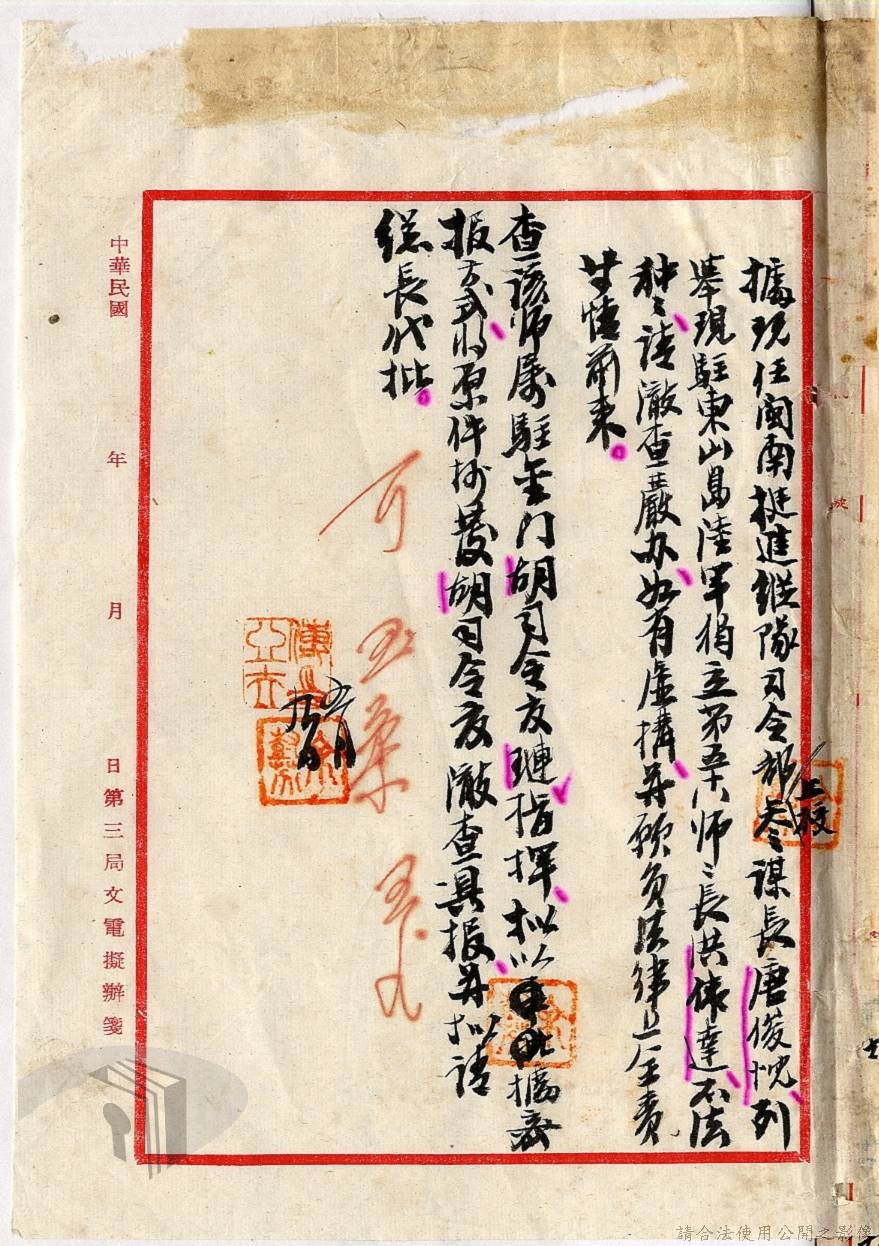 據現任閩南挺進縱隊司令部上校參謀長唐俊忱、列
舉現駐東山島陸軍獨立第五十八師〻長洪偉達、不法
種〻、請澈查嚴办、如有虛構、并願負法律上全責
等情前来。
查該師属駐金门胡司令友璉指揮、拟以據密
报方式、将原件抄發胡司令友澈查具报、并拟請
總長代批。
可
五、九
中華民國 年 月 日第三局文電擬辦箋
請合法使用公開之影像